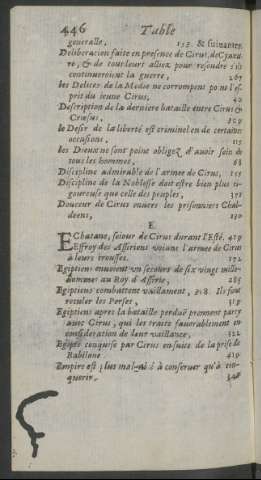 446 Table
generalle, 155. & suivantes
Deliberation faite en presence de Cirus, de Cyaxa-
re, & de tous leurs alliez pour resoudre s'ils
continueroient la guerre, 267
les Delices de la Medie ne corrompent point l'es-
prit du jeune Cirus, 40
Description de la derniere bataille entre Cirus &
Crœsus, 309
le Desir de la liberté est criminel en de certaines
occasions, 115
les Dieux ne sont point obligez d'avoir soin de
tous les hommes, 68
Discipline admirable de l'armee de Cirus, 155
Discipline de la Noblesse doit estre bien plus ri-
goureuse que celle des peuples, 175
Douceur de Cirus envers les prisonniers Chal-
deens, 130
E.
EChatane, sejour de Cirus durant l'Esté. 429
Effroy des Assiriens voiant l'armee de Cirus
à leurs trousses. 172
Egiptiens envoient un secours de six vingt mille
hommes au Roy d'Assirie, 285
Egiptiens combattent vaillament, 318. Ils font
reculer les Perses, 319
Egiptiens apres la bataille perduë prennent party
avec Cirus, qui les traite favorablement en
consideration de leur vaillance, 322
Egipte conquise par Cirus en suite de la prise de
Babilone 429
Empire est plus mal-aisé à conserver qu'à con-
querir.